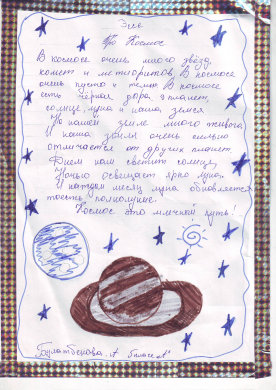 Эссе
Про Космос
В космосе очень много звёзд,
комет и метиоритов. В космосе
очень пусто и темно В космосе
есть чёрная дора, 9 планет,
солнце, луна и наша земля.
На нашей земле много живого
И наша земля очень сильно
отличается от других планет
Днем нам светит солнце,
Ночью освещает ярко луна.
И каждый месяц луна обновляется
тоесть полнолуние.
Космос это млечный путь!
Булатбекова А. 6 класс "А"